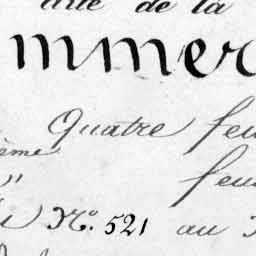 de la
mmer
Quatre feu
ème
" feu
Nº. 521 au